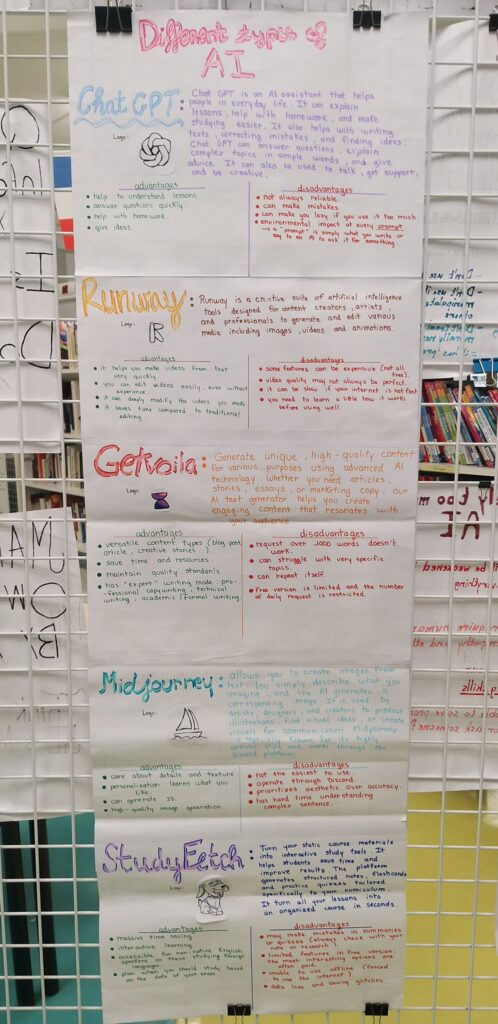 Different types of
AI
ChatGPT :
Chat GPT is an AI assistant that helps
people in everyday life. It can explain
lessons, help with homework, and make
studying easier. It also helps with writing
texts, correcting mistakes, and finding ideas.
Chat GPT can answer questions, explain
complex topics in simple words, and give
advice. It can also be used to talk, get support,
and be creative.
Logo:
advantages
help to understand lessons.
answer questions quickly.
help with homework.
give ideas.
disadvantages
not always reliable.
can make mistakes.
can make you lazy if you use it too much
environmental impact of every prompt
→ a "prompt" is simply what you write or
say to an AI to ask it for something.
Runway :
Runway is a creative suite of artificial intelligence
tools designed for content creators, artists,
and professionals to generate and edit various
media including images, videos and animations.
Logo:
advantages
it helps you make videos from text
very quickly.
you can edit videos easily, even without
experience.
it can deeply modify the videos you made
it saves time compared to traditional
editing.
disadvantages
some features can be expensive (not all
free).
video quality may not always be perfect.
it can be slow if your internet is not fast
you need to learn a little how it works
before using well.
Getvoila :
Generate unique, high-quality content
for various purposes using advanced AI
technology. Whether you need articles,
stories, essays, or marketing copy, our
AI text generator helps you create
engaging content that resonates with
your audience
Logo:
advantages
versatile content types (blog post,
article, creative stories...)
save time and resources
maintain quality standards.
has "expert" writing mode: pro-
fessional copywriting, technical
writing, academic/formal writing.
disadvantages
request over 1000 words doesn't
work.
can struggle with very specific
topics.
can repeat itself.
free version is limited and the number
of daily request is restricted.
Midjourney :
allows you to create images from
text. You simply describe what you
imagine, and the AI generates a
corresponding image. It is used by
artists, designers, and creators to produce
illustrations, find visual ideas, or create
visuals for communication. Midjourney
is especially known for its highly
artistic style and works through the
Discord platform.
Logo:
advantages
care about details and texture
personalization: learns what you
like.
can generate 3D.
high-quality image generation
disadvantages
not the easiest to use.
operate through Discord.
prioritizes aesthetic over accuracy.
has hard time understanding
complex sentence.
StudyFetch :
Turn your static course materials
into interactive study tools. It
helps students save time and
improve results. The platform
generates structured notes, flashcards
and practice quizzes tailored
specifically to your curriculum.
It turn all your lessons into
an organized course in seconds.
Logo:
advantages
massive time saving.
interactive learning
accessible for non-native English
speakers or those studying foreign
languages.
plan when you should study based
on the date of your exam
disadvantages
may make mistakes in summaries
or quizzes (always check with your
note or research).
limited features in free version
the most interesting options are
often paid.
unable to use offline (forced
to use the internet).
data loss and saving glitches.